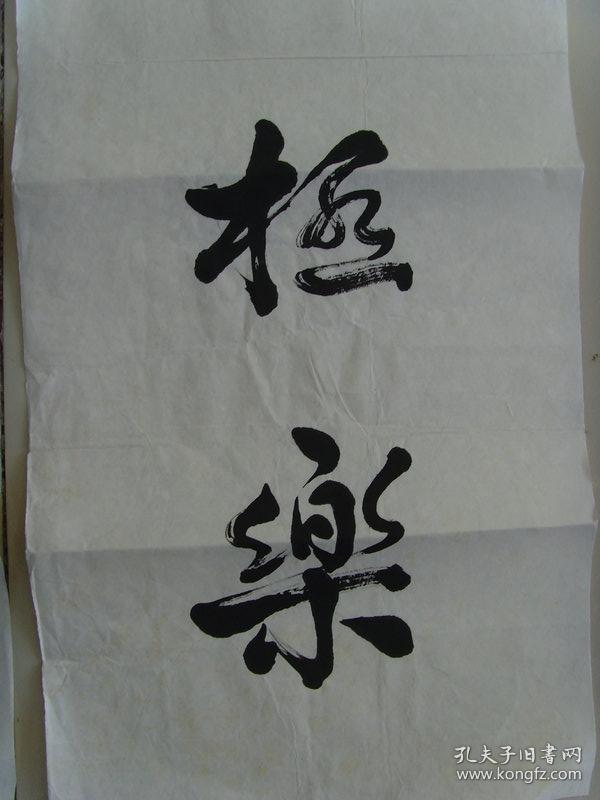 極
樂
孔夫子旧書网
www.kongfz.com